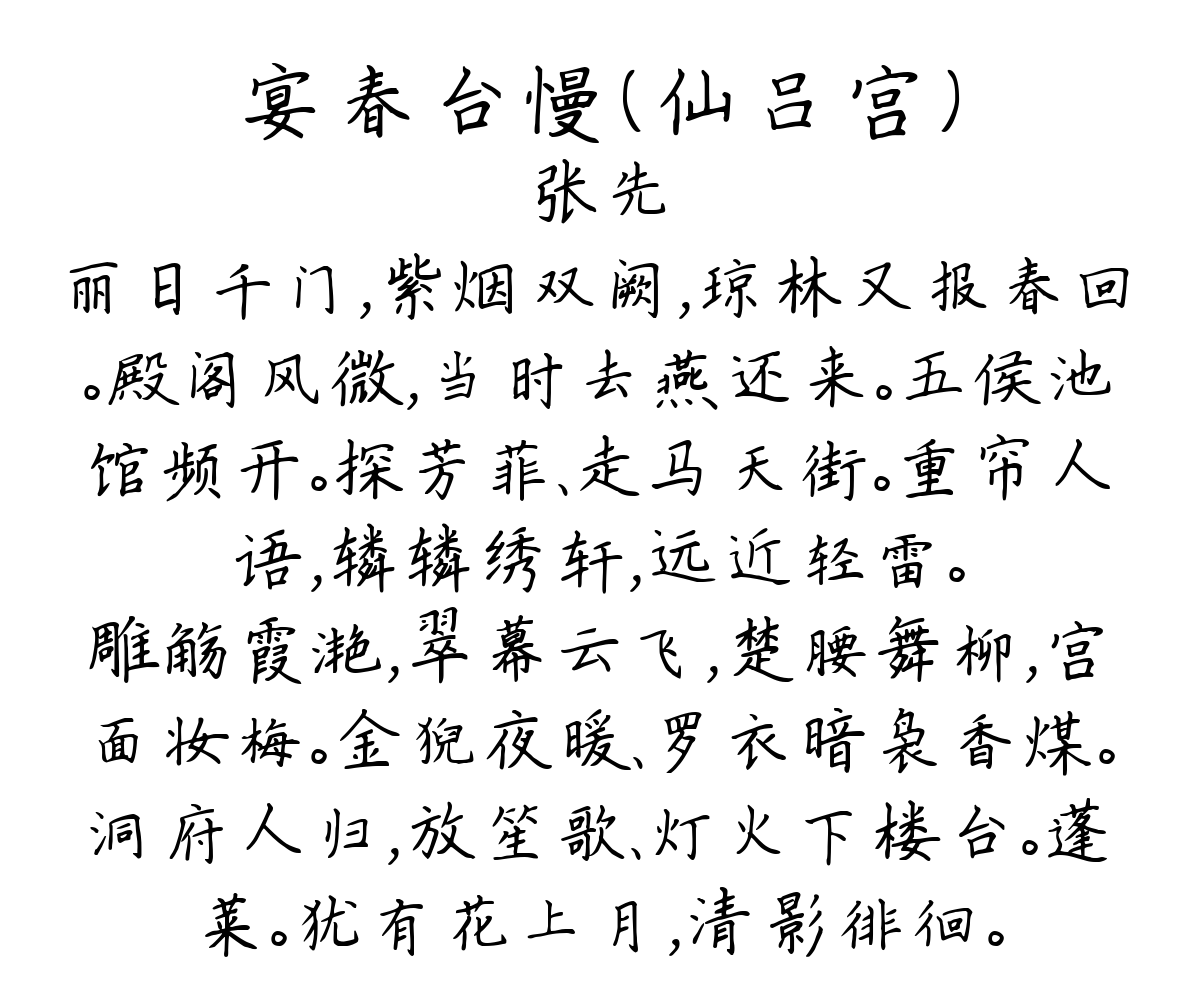 宴春台慢(仙吕宫)
张先
丽日千门,紫烟双阙,琼林又报春回
。殿阁风微,当时去燕还来。五侯池
馆频开。探芳菲、走马天街。重帘人
语,辚辚绣轩,远近轻雷。
雕觞霞滟,翠幕云飞,楚腰舞柳,宫
面妆梅。金猊夜暖、罗衣暗袅香煤。
洞府人归,放笙歌、灯火下楼台。蓬
莱。犹有花上月,清影徘徊。